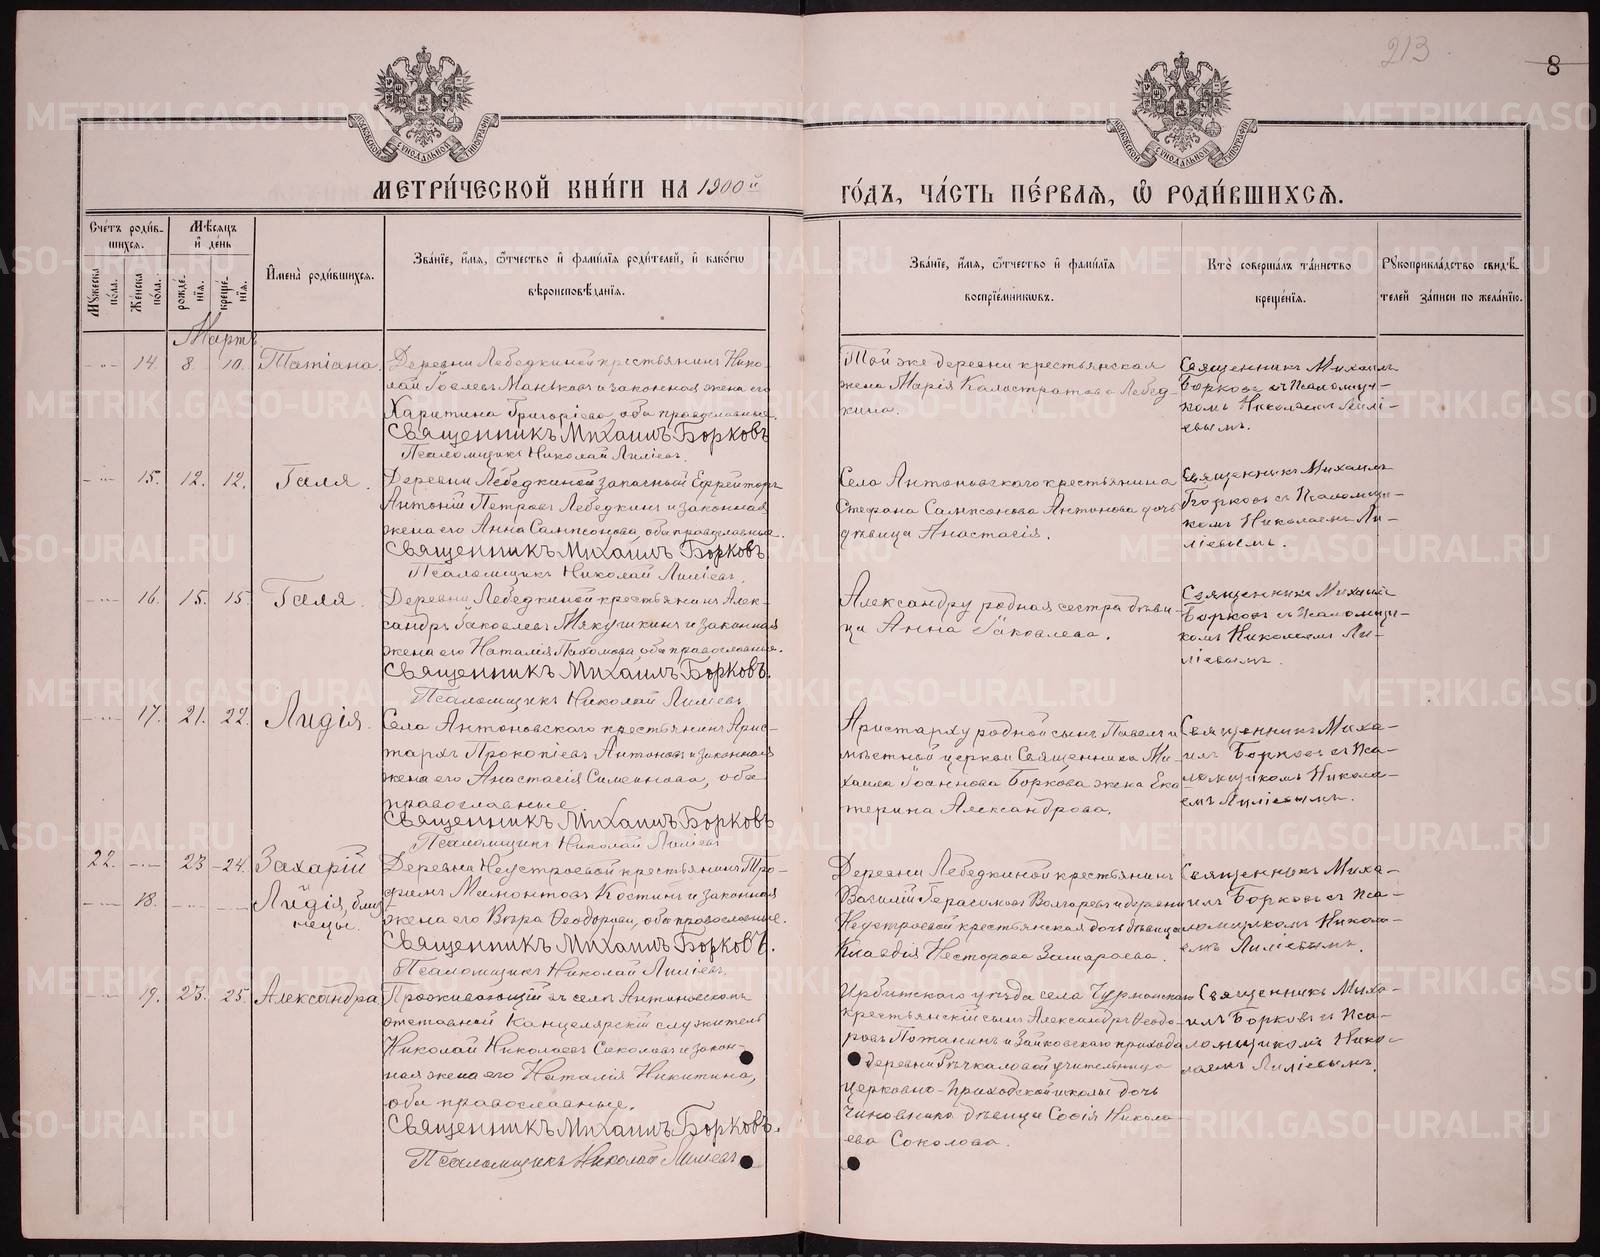 213
8
МЕТРИ́ЧЕСКОЙ КНИ́ГИ НА 1900й
ГО́ДЪ, ЧА́СТЬ ПЕ́РВАѦ, Ѡ҆ РОДИ́ВШИХСѦ.
Сче́тъ роди́в-
шихся.
Мѣ́сяцъ
и҆ де́нь
Му́жеска по́ла.
Же́нска по́ла.
рожде́-
нїя.
креще́-
нїя.
И҆мена̀ роди́вшихся.
Зва́нїе, и҆́мя, ѻ҆́тчество и҆ фами́лїя роди́телей, и҆ како́гѡ
вѣроисповѣ́данїя.
Зва́нїе, и҆́мя, ѻ҆́тчество и҆ фами́лїя
воспрїе́мниковъ.
Кто̀ соверша́лъ та́инство
креще́нїя.
Рꙋкоприкла́дство свидѣ́-
телей за́писи по жела́нїю.
Мартъ
14. 8. 10. Татіана.
Деревни Лебедкиной крестьянинъ Нико-
лай
законная жена его
Харитина Григоріева, оба православные.
Священникъ Михаилъ Борковъ
Псаломщикъ Николай Лиліевъ.
Той же деревни крестьянская
жена Марія Калистратова Лебед-
кина.
Священникъ Михаилъ
Борковъ съ Псаломщи-
комъ Николаемъ Лилі-
евымъ.
15. 12. 12. Галя.
Деревни Лебедкиной запасный Ефрейторъ
Антоній Петровъ Лебедкинъ и законная
жена его Анна Сампсонова, оба православные.
Священникъ Михаилъ Борковъ
Псаломщикъ Николай Лиліевъ.
Села Антоновскаго крестьянина
Стефана Сампсонова Антонова дочь
дѣвица Анастасія.
Священникъ Михаилъ
Борковъ съ Псаломщи-
комъ Николаемъ Ли-
ліевымъ.
16. 15. 15. Галя.
Деревни Лебедкиной крестьянинъ Алек-
сандръ Іаковлевъ Мякушкинъ и законная
жена его Наталія Пахомова, оба православные.
Священникъ Михаилъ Борковъ.
Псаломщикъ Николай Лиліевъ
Александру родная сестра дѣви-
ца Анна Іаковлева.
Священникъ Михаилъ
Борковъ съ Псаломщи-
комъ Николаемъ Ли-
ліевымъ.
17. 21. 22. Лидія.
Села Антоновскаго крестьянинъ Арис-
тархъ Прокопіевъ Антоновъ и законная
жена его Анастасія Симеонова, оба
православные
Священникъ Михаилъ Борковъ
Псаломщикъ Николай Лиліевъ
Аристарху родной сынъ Павелъ и
мѣстной церкви Священника Ми-
хаила Іоаннова Боркова жена Ека-
терина Александрова.
Священникъ Миха-
илъ Борковъ съ Пса-
ломщикомъ Никола-
емъ Лиліевымъ.
22. 23 - 24. Захарій
18. Лидія, близ
нецы.
Деревни Неустроевой крестьянинъ Тро-
фимъ Мамонтовъ Костинъ и законная
жена его Вѣра Ѳеодорова, оба православные.
Священникъ Михаилъ Борковъ.
Псаломщикъ Николай Лиліевъ.
Деревни Лебедкиной крестьянинъ
Василій Герасимовъ Волгаревъ и деревни
Неустроевой крестьянская дочь дѣвица
Клавдія Несторова Замараева.
Священникъ Миха-
илъ Борковъ съ Пса-
ломщикомъ Никола-
емъ Лиліевымъ.
19. 23. 25. Александра
Проживающій въ селѣ Антоновскомъ
отставной Канцелярскій служитель
Николай Николаевъ Соколовъ и закон-
ная жена его Наталія Никитина,
оба православные.
Священникъ Михаилъ Борковъ.
Псаломщикъ Николай Лиліевъ
Ирбитскаго уѣзда села
крестьянскій сынъ Александръ Ѳеодо-
ровъ Потанинъ и Зайковскаго прихода
деревни Речкаловой учительница
церковно-приходской школы дочь
чиновника дѣвица Софія Никола-
ева Соколова.
Священникъ Миха-
илъ Борковъ съ Пса-
ломщикомъ Нико-
лаемъ Лиліевымъ.